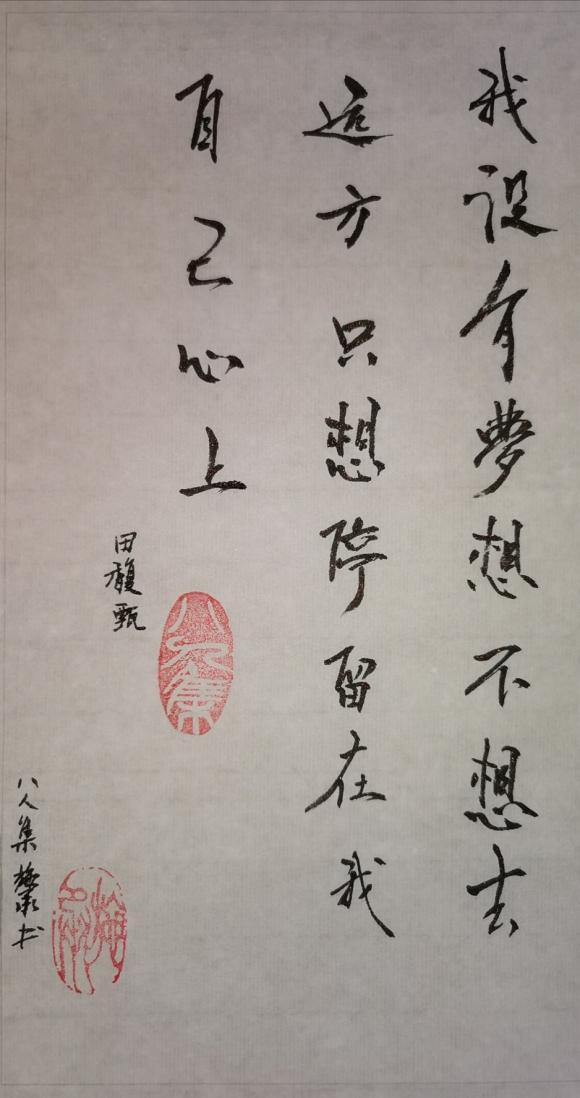 我没有夢想不想去
遠方只想停留在我
自己心上
田馥甄
八人集
八人集 梅 书